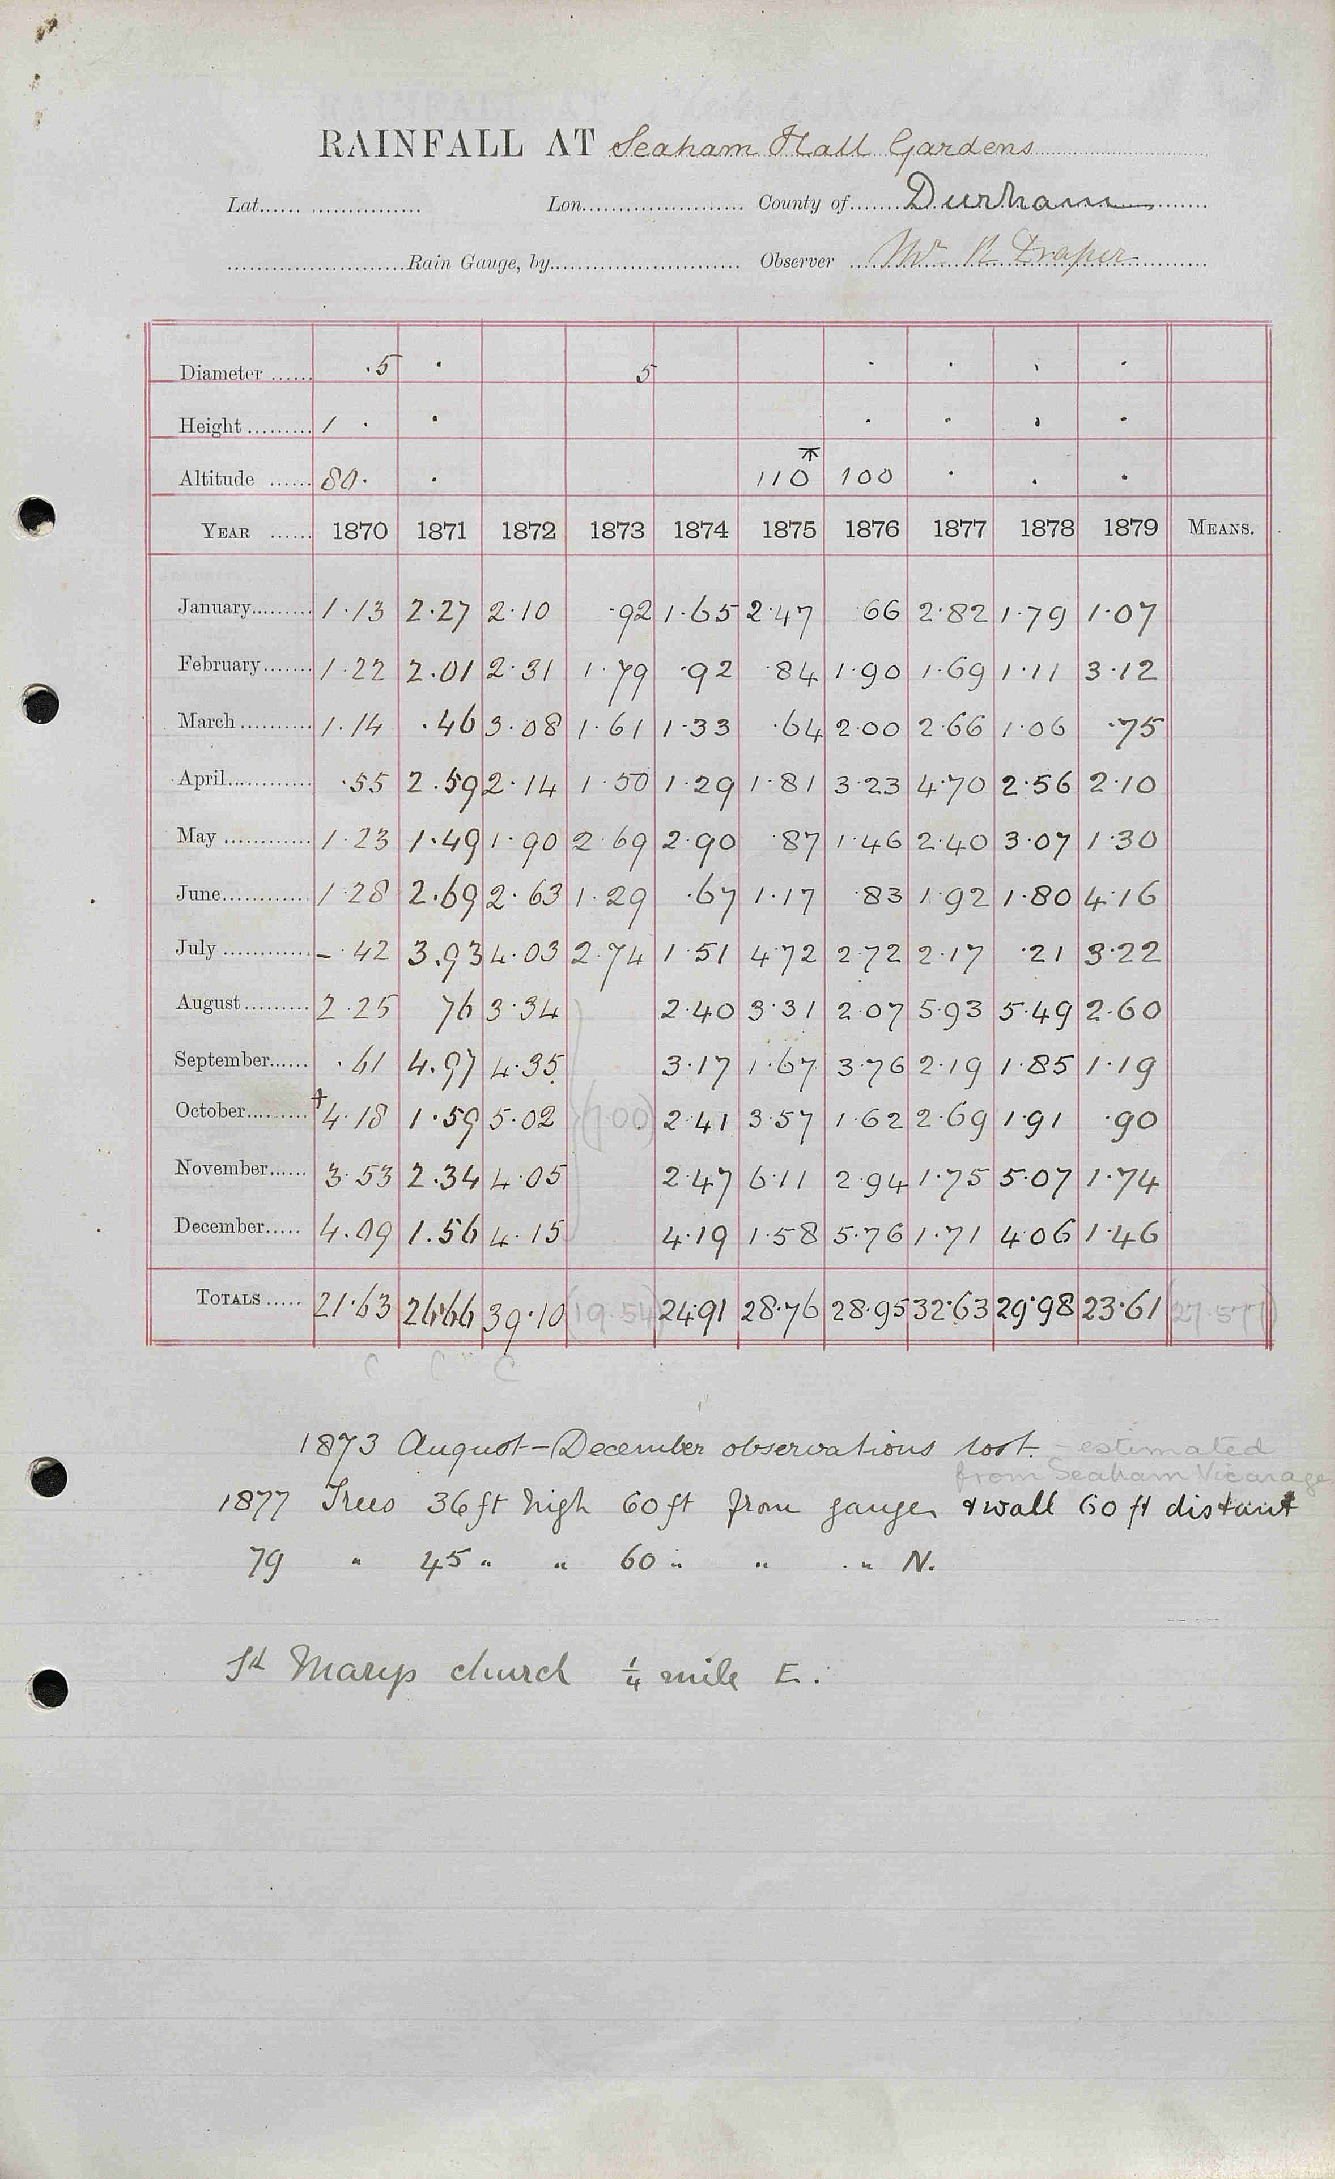 RAINFALL AT Seaham Hall Gardens
Lat. Lon. County of Durham
Rain Gauge, by Observer Mr R Draper
Diameter ...... ·5 · 5 · · · ·
Height ......... 1 · · · · · ·
Altitude ...... 80· · 110 100 · · ·
YEAR ...... 1870 1871 1872 1873 1874 1875 1876 1877 1878 1879 MEANS.
January 1·13 2·27 2·10 ·92 1·65 2·47 66 2·82 1·79 1·07
February 1·22 2.01 2·31 1·79 ·92 ·84 1·90 1·69 1·11 3·12
March 1·14 .46 3·08 1·61 1·33 ·64 2·00 2·66 1·06 ·75
April ·55 2.59 2·14 1·50 1·29 1·81 3·23 4·70 2·56 2·10
May 1·23 1·49 1·90 2·69 2·90 ·87 1·46 2·40 3·07 1·30
June 1·28 2.69 2·63 1·29 ·67 1·17 ·83 1·92 1·80 4·16
July – ·42 3.93 4·03 2·74 1·51 4·72 2·72 2·17 ·21 3·22
August 2·25 76 3·34 2·40 3·31 2·07 5·93 5·49 2·60
September ·61 4.97 4·35 3·17 1·67 3·76 2·19 1·85 1·19
October †4·18 1·59 5·02 (7·00) 2·41 3·57 1·62 2·69 1·91 ·90
November 3·53 2.34 4·05 2·47 6·11 2·94 1·75 5·07 1·74
December 4·09 1.56 4·15 4·19 1·58 5·76 1·71 4·06 1·46
TOTALS 21·63 26·66 39·10 (19·54) 24·91 28·76 28·95 32·63 29·98 23·61 (27·577)
C C C
1873 August – December observations lost. – estimated
from Seaham Vicarage
1877 Trees 36 ft high 60 ft from gauge & wall 60 ft distant
79 " 45 " " 60 " " " N.
St Marys church ¼ mile E.